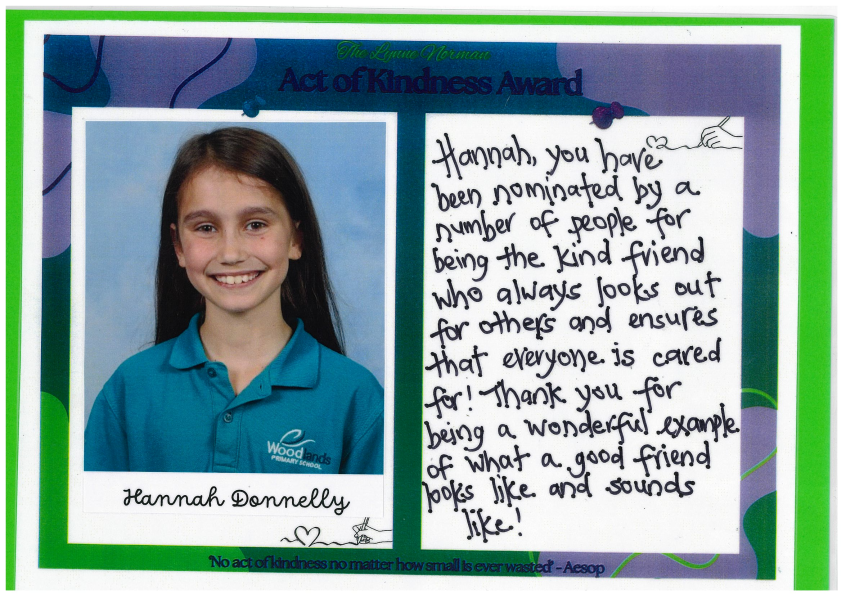 The Lynne Norman
Act of Kindness Award
Hannah, you have
been nominated by a
number of people for
being the kind friend
who always looks out
for others and ensures
that everyone is cared
for! Thank you for
being a wonderful example
of what a good friend
looks like and sounds
like!
Woodlands
PRIMARY SCHOOL
Hannah Donnelly
'No act of kindness no matter how small is ever wasted' - Aesop